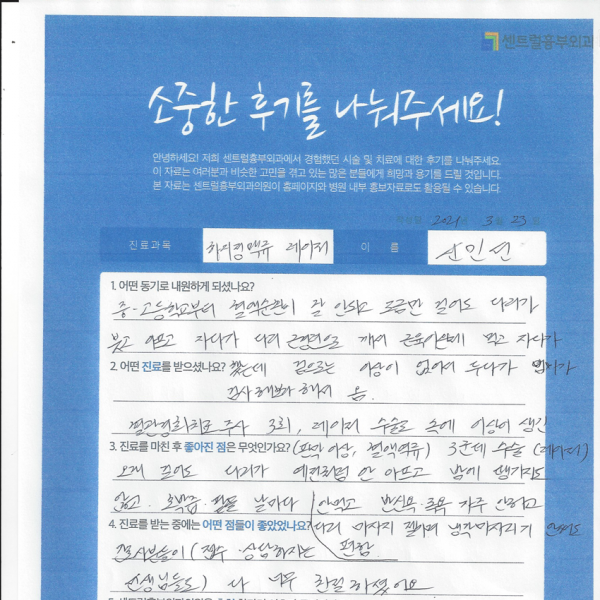 센트럴흉부외과
소중한 후기를 나눠주세요!
안녕하세요! 저희 센트럴흉부외과에서 경험했던 시술 및 치료에 대한 후기를 나눠주세요.
이 자료는 여러분과 비슷한 고민을 겪고 있는 많은 분들에게 희망과 용기를 드릴 것입니다.
본 자료는 센트럴흉부외과의원이 홈페이지와 병원 내부 홍보자료로도 활용될 수 있습니다.
2021 3 23
진료과목 하지정맥류 레이저 이 름 신인선
1. 어떤 동기로 내원하게 되셨나요?
중·고등학교부터 혈액순환이 잘 안되고 조금만 걸어도 다리가
붓고 아프고 자다가 다리 경련으로 깨어 근육이완제 먹고 자다가
2. 어떤 진료를 받으셨나요? 했는데 겉으로는 이상이 없어서 두다가
검사 해보라 해서 옴.
혈관경화치료주사 3회, 레이저 수술로 속에 이상이 생긴
3. 진료를 마친 후 좋아진 점은 무엇인가요? (판막 이상, 혈액역류) 3군데 수술 (레이저)
오래 걸어도 다리가 예전처럼 안 아프고 밤에 땡기지도
않고. 호박즙 날마다 안먹고 반신욕·족욕 자주 안하고
4. 진료를 받는 중에는 어떤 점들이 좋았었나요? 다리 마사지 젤이며 냉각마사지기 안써도
편함.
간호사분들이 (접수·상담하자는
선생님들도) 다 너무 친절하셨어요